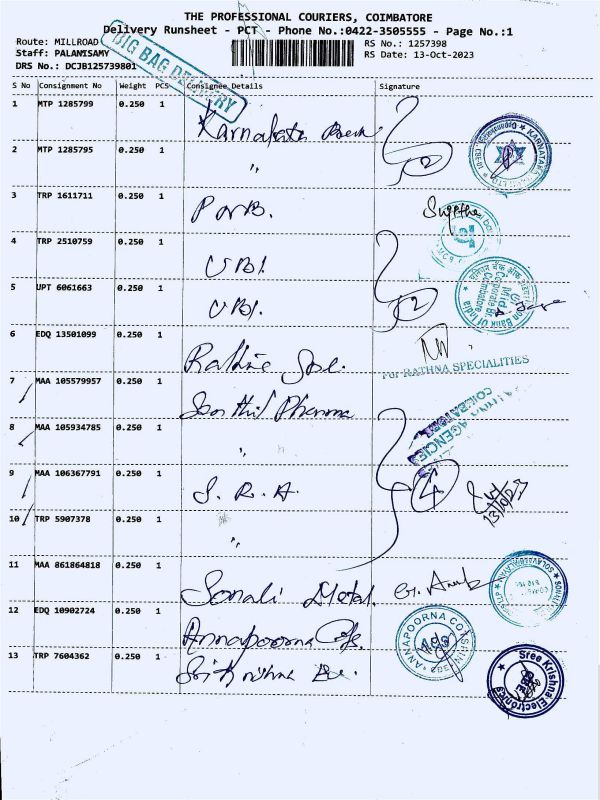 THE PROFESSIONAL COURIERS, COIMBATORE
Delivery Runsheet - PCT - Phone No.:0422-3505555 - Page No.:1
Route: MILLROAD RS No.: 1257398
Staff: PALANISAMY RS Date: 13-Oct-2023
DRS No.: DCJB125739801
BIG BAG DELIVERY
S No Consignment No Weight PCS Consignee Details Signature
1 MTP 1285799 0.250 1 Karnataka Bank
2 MTP 1285795 0.250 1 " 2
3 TRP 1611711 0.250 1 Sugetha
4 TRP 2510759 0.250 1 UBI.
5 UPT 6061663 0.250 1 UBI. 2
6 EDQ 13501099 0.250 1
For RATHNA SPECIALITIES
7 MAA 105579957 0.250 1 Senthil Pharma
8 MAA 105934785 0.250 1 "
AGENCIES
COIMBATORE
9 MAA 106367791 0.250 1 S. R. A. 4
13/10/23
10 TRP 5907378 0.250 1 "
11 MAA 861864818 0.250 1 Sonali Metal.
12 EDQ 10902724 0.250 1 Annapoorna
ANNAPOORNA
13 TRP 7604362 0.250 1 Sri Krishna
Sree Krishna Electronics
KARNATAKA
Union Bank Of India
Coimbatore